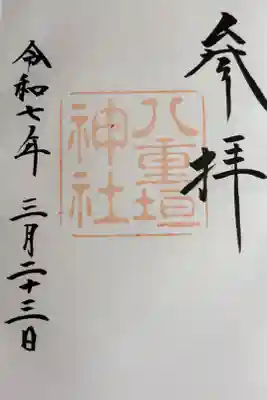 参拝
八重垣
神社
令和七年 三月二十三日